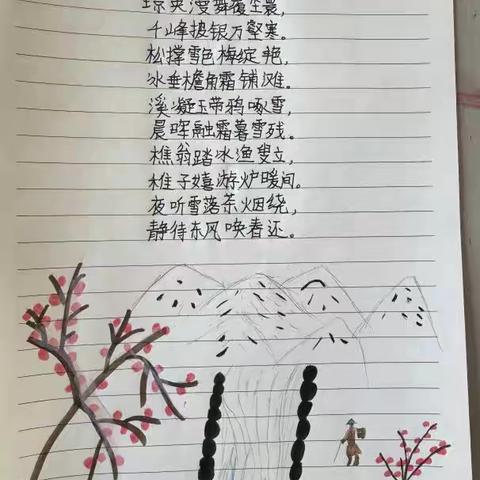 琼英漫舞覆尘晨,
千峰披银万壑寒。
松撑雪色梅绽艳,
冰垂檐角霜铺滩。
溪凝玉带鸦啄雪,
晨晖融霜暮雪残。
樵翁踏冰渔叟立,
稚子嬉游炉暖间。
夜听雪落茶烟绕,
静待东风唤春还。